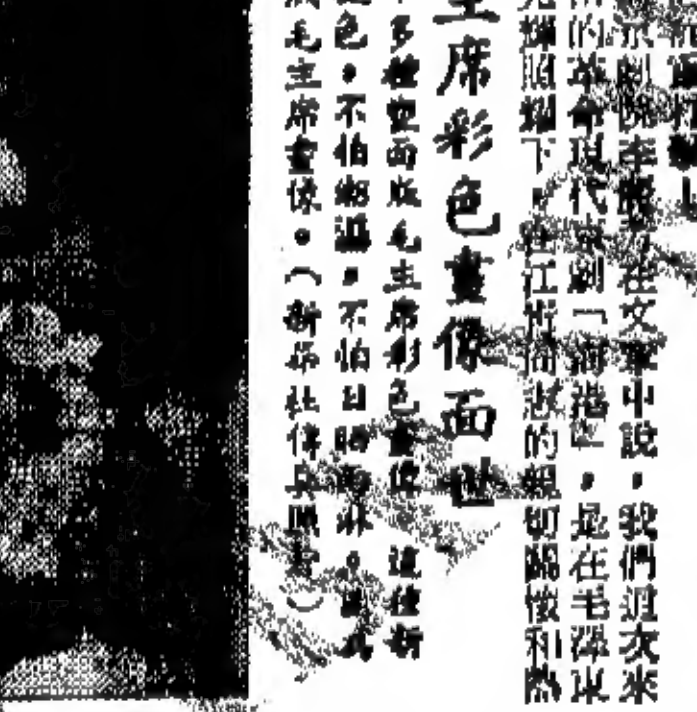 京劇院李麗芳在文章中說,我們這次來
的革命現代京劇「海港」,是在毛澤東
光輝照耀下,在江青同志的親切關懷和熱
主席彩色畫像面世
多種塑面版毛主席彩色畫像。這種新
色,不怕潮濕,不怕日晒雨淋。
毛主席畫像。(新華社傳真照片)